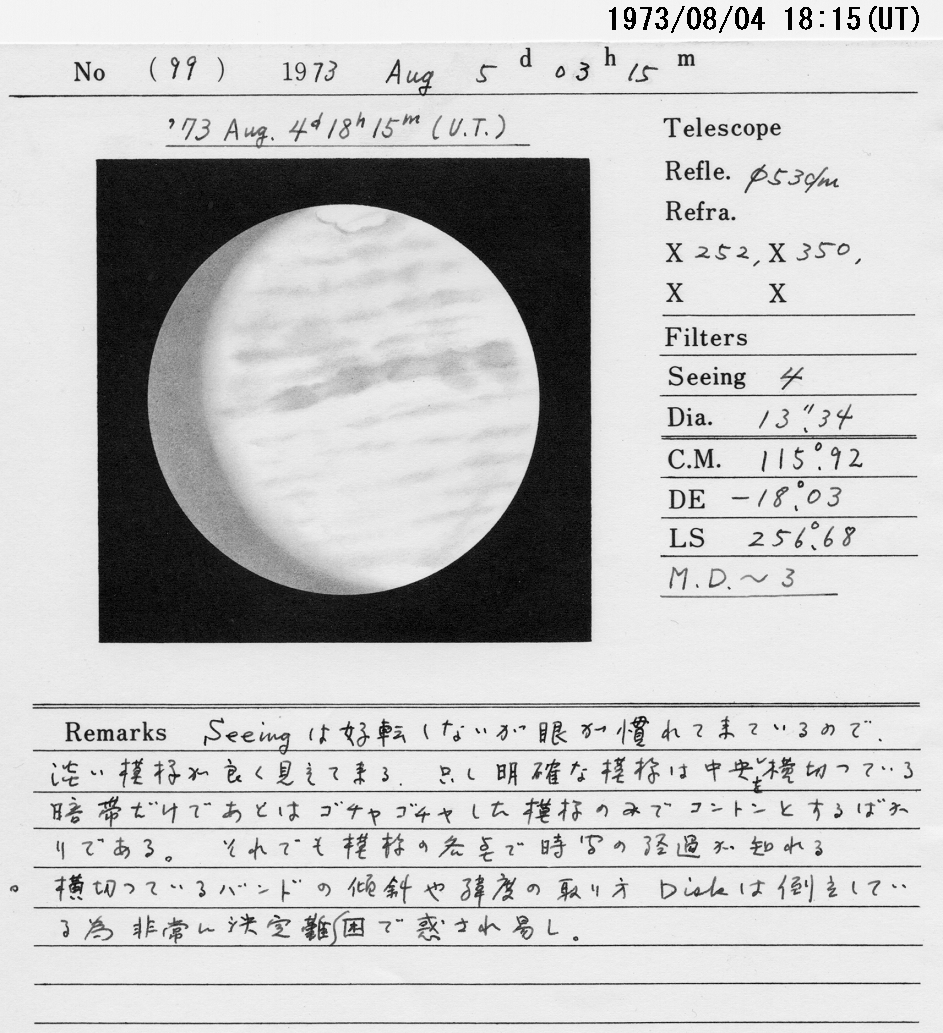 1973/08/04 18:15(UT)
No (99) 1973 Aug 5 d 03 h 15 m
'73 Aug. 4d 18h 15m (U.T.)
Telescope
Refle. φ53cm
Refra.
X 252, X 350,
X X
Filters
Seeing 4
Dia. 13".34
C.M. 115°.92
DE -18°.03
LS 256°.68
M.D. ~ 3
Remarks Seeingは好転しないが眼が慣れて来ているので、
淡い模様が良く見えて来る. 只し明確な模様は中央を横切っている
暗帯だけであとはゴチャゴチャした模様のみでコントンとするばか
りである。 それでも模様の各々で時間の経過が知れる
横切っているバンドの傾斜や緯度の取り方 Diskは倒立してい
る為非常に決定難困で惑され易し。